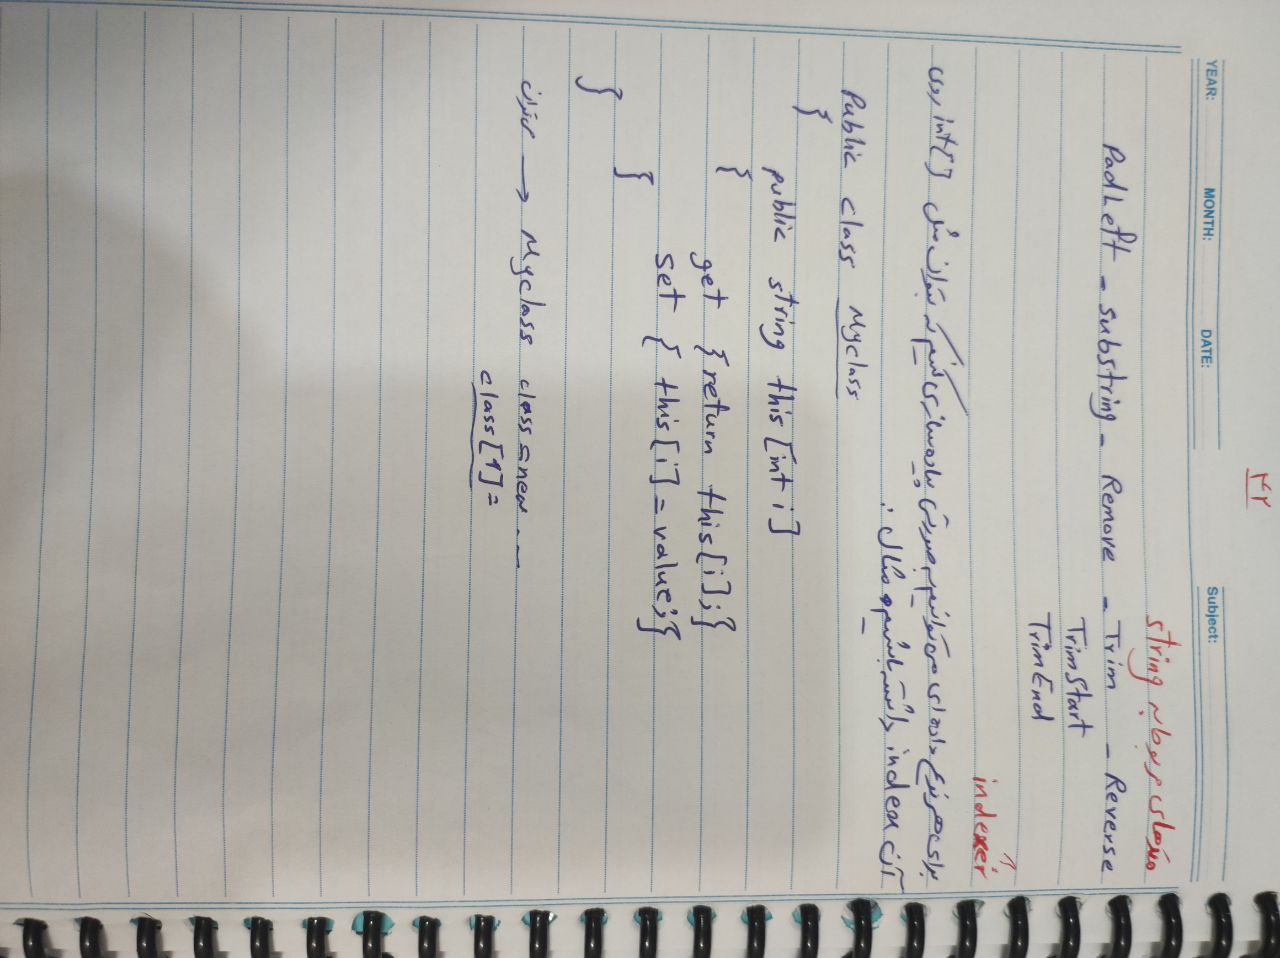 ۴۲
YEAR: MONTH: DATE: Subject:
متدهای مربوط به string
PadLeft - substring - Remove - Trim - Reverse
TrimStart
TrimEnd
indexer
برای هر نوع داده ای می توانیم به صورتی پیاده سازی کنیم که بتوان مثل int[] روی
آن index داشته باشیم مثال :
Public class Myclass
{
public string this [int i]
{
get {return this[i];}
set { this[i] = value;}
}
}
می توان → Myclass class = new ...
class[1] =